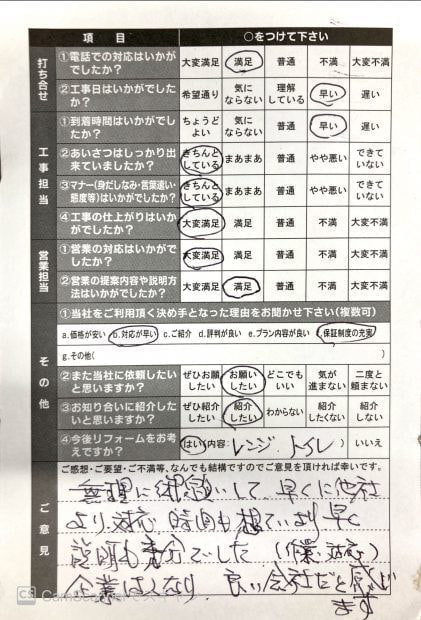 項目 ○をつけて下さい
打ち合せ
①電話での対応はいかがでしたか？ 大変満足 満足 普通 不満 大変不満
②工事日はいかがでしたか？ 希望通り 気にならない 理解している 早い 遅い
工事担当
①到着時間はいかがでしたか？ ちょうどよい 気にならない 普通 早い 遅い
②あいさつはしっかり出来ていましたか？ きちんとしている まあまあ 普通 やや悪い できていない
③マナー(身だしなみ・言葉遣い・態度等)はいかがでしたか？ きちんとしている まあまあ 普通 やや悪い できていない
④工事の仕上がりはいかがでしたか？ 大変満足 満足 普通 不満 大変不満
営業担当
①営業の対応はいかがでしたか？ 大変満足 満足 普通 不満 大変不満
②営業の提案内容や説明方法はいかがでしたか？ 大変満足 満足 普通 不満 大変不満
その他
①当社をご利用頂く決め手となった理由をお聞かせ下さい(複数可)
a.価格が安い b.対応が早い c.ご紹介 d.評判が良い e.プラン内容が良い f.保証制度の充実
g.その他( )
②また当社に依頼したいと思いますか？ ぜひお願いしたい お願いしたい どこでもいい 気が進まない 二度と頼まない
③お知り合いに紹介したいと思いますか？ ぜひ紹介したい 紹介したい わからない 紹介したくない 紹介しない
④今後リフォームをお考えですか？ はい(内容: レンジ、トイレ ) いいえ
ご意見
ご感想・ご要望・ご不満等、なんでも結構ですのでご意見を頂ければ幸いです。
無理にお願いして、早くに他社
より、対応、時間も想ていより早く
説明も充分でした
企業は人なり、良い会社だと感じ
ます
CS CamScanner